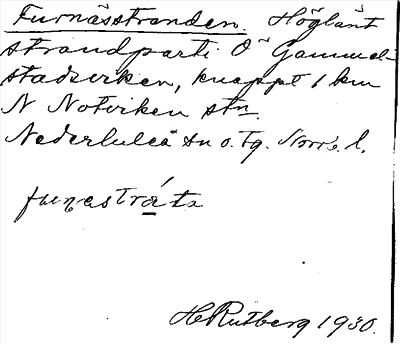 Furnässtranden. Höglänt
strandparti Ö Gammel-
stadsviken, knappt 1 km
N Notviken stn.
Nederluleå sn o. tg. Norrb. l.
H Rutberg 1930.